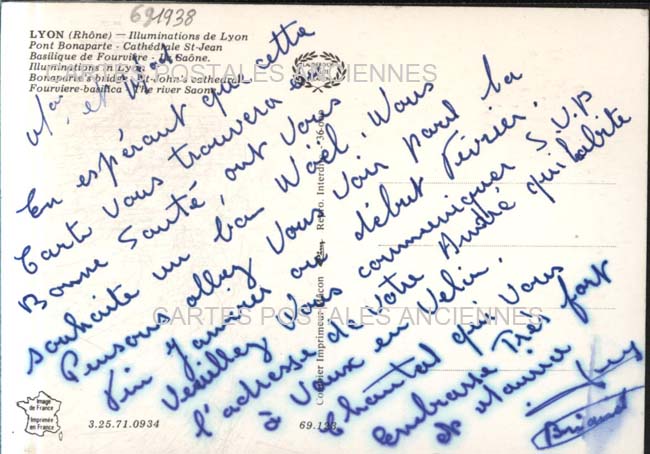 691938
LYON (Rhône) — Illuminations de Lyon
Pont Bonaparte - Cathédrale St-Jean
Basilique de Fourvière - La Saône.
Illuminations in Lyon
Bonaparte's bridge - St-John's cathedral
Fourviere-basilica - The river Saone
CARTES POSTALES ANCIENNES
En espérant que cette
Carte vous trouvera en
Bonne Santé ont vous
souhaite un bon Noël. Nous
Pensons allez vous voir pard la
fin Janvier ou début Février.
Veuillez vous communiquer S.V.P
l'adresse de votre André qui habite
à Vaux en Velin.
Chantal qui vous
embrasse Très fort
et Maurice
CARTES POSTALES ANCIENNES
Image de France
Imprimée en France
3.25.71.0934
69.123
Combier Imprimeur Macon
Repro. Interdite